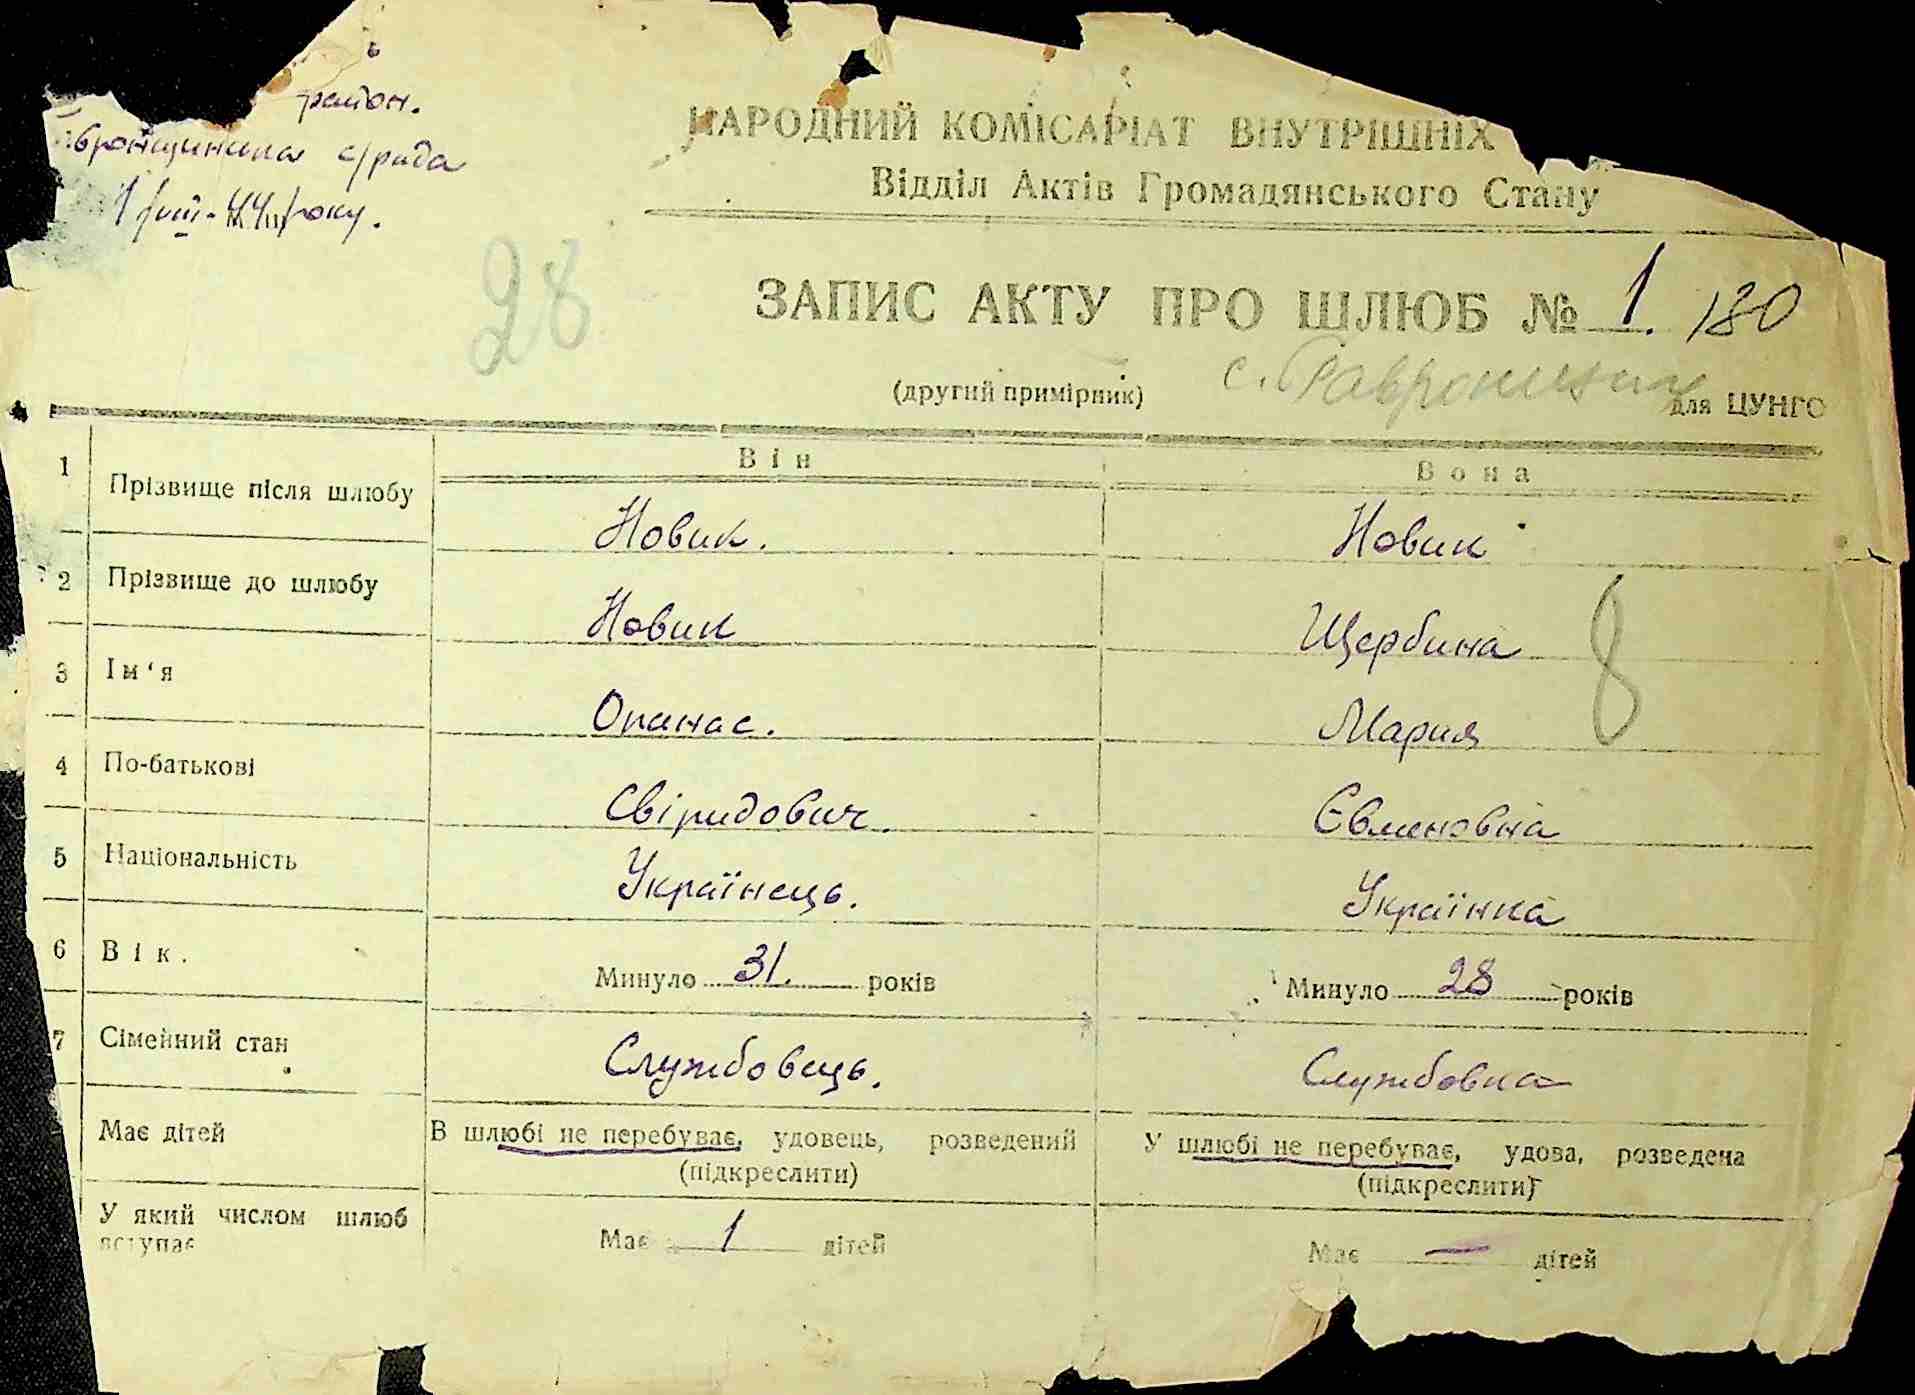 район.
вронщинська с/рада
1/VIII-44 року.
НАРОДНИЙ КОМІСАРІАТ ВНУТРІШНІХ
Відділ Актів Громадянського Стану
28
ЗАПИС АКТУ ПРО ШЛЮБ № 1. 180
(другий примірник) с. для ЦУНГО
Він Вона
1 Прізвище після шлюбу Новик. Новик
2 Прізвище до шлюбу Новик Щербина
8
3 Ім'я Опанас. Мария
4 По-батькові Свіридович. Євменовна
5 Національність Українець. Українка
6 Вік. Минуло 31. років Минуло 28 років
7 Сімейний стан Службовець. Службовка
Має дітей В шлюбі не перебуває, удовець, розведений У шлюбі не перебуває, удова, розведена
(підкреслити) (підкреслити)
У який числом шлюб Має 1 дітей Має — дітей
вступає